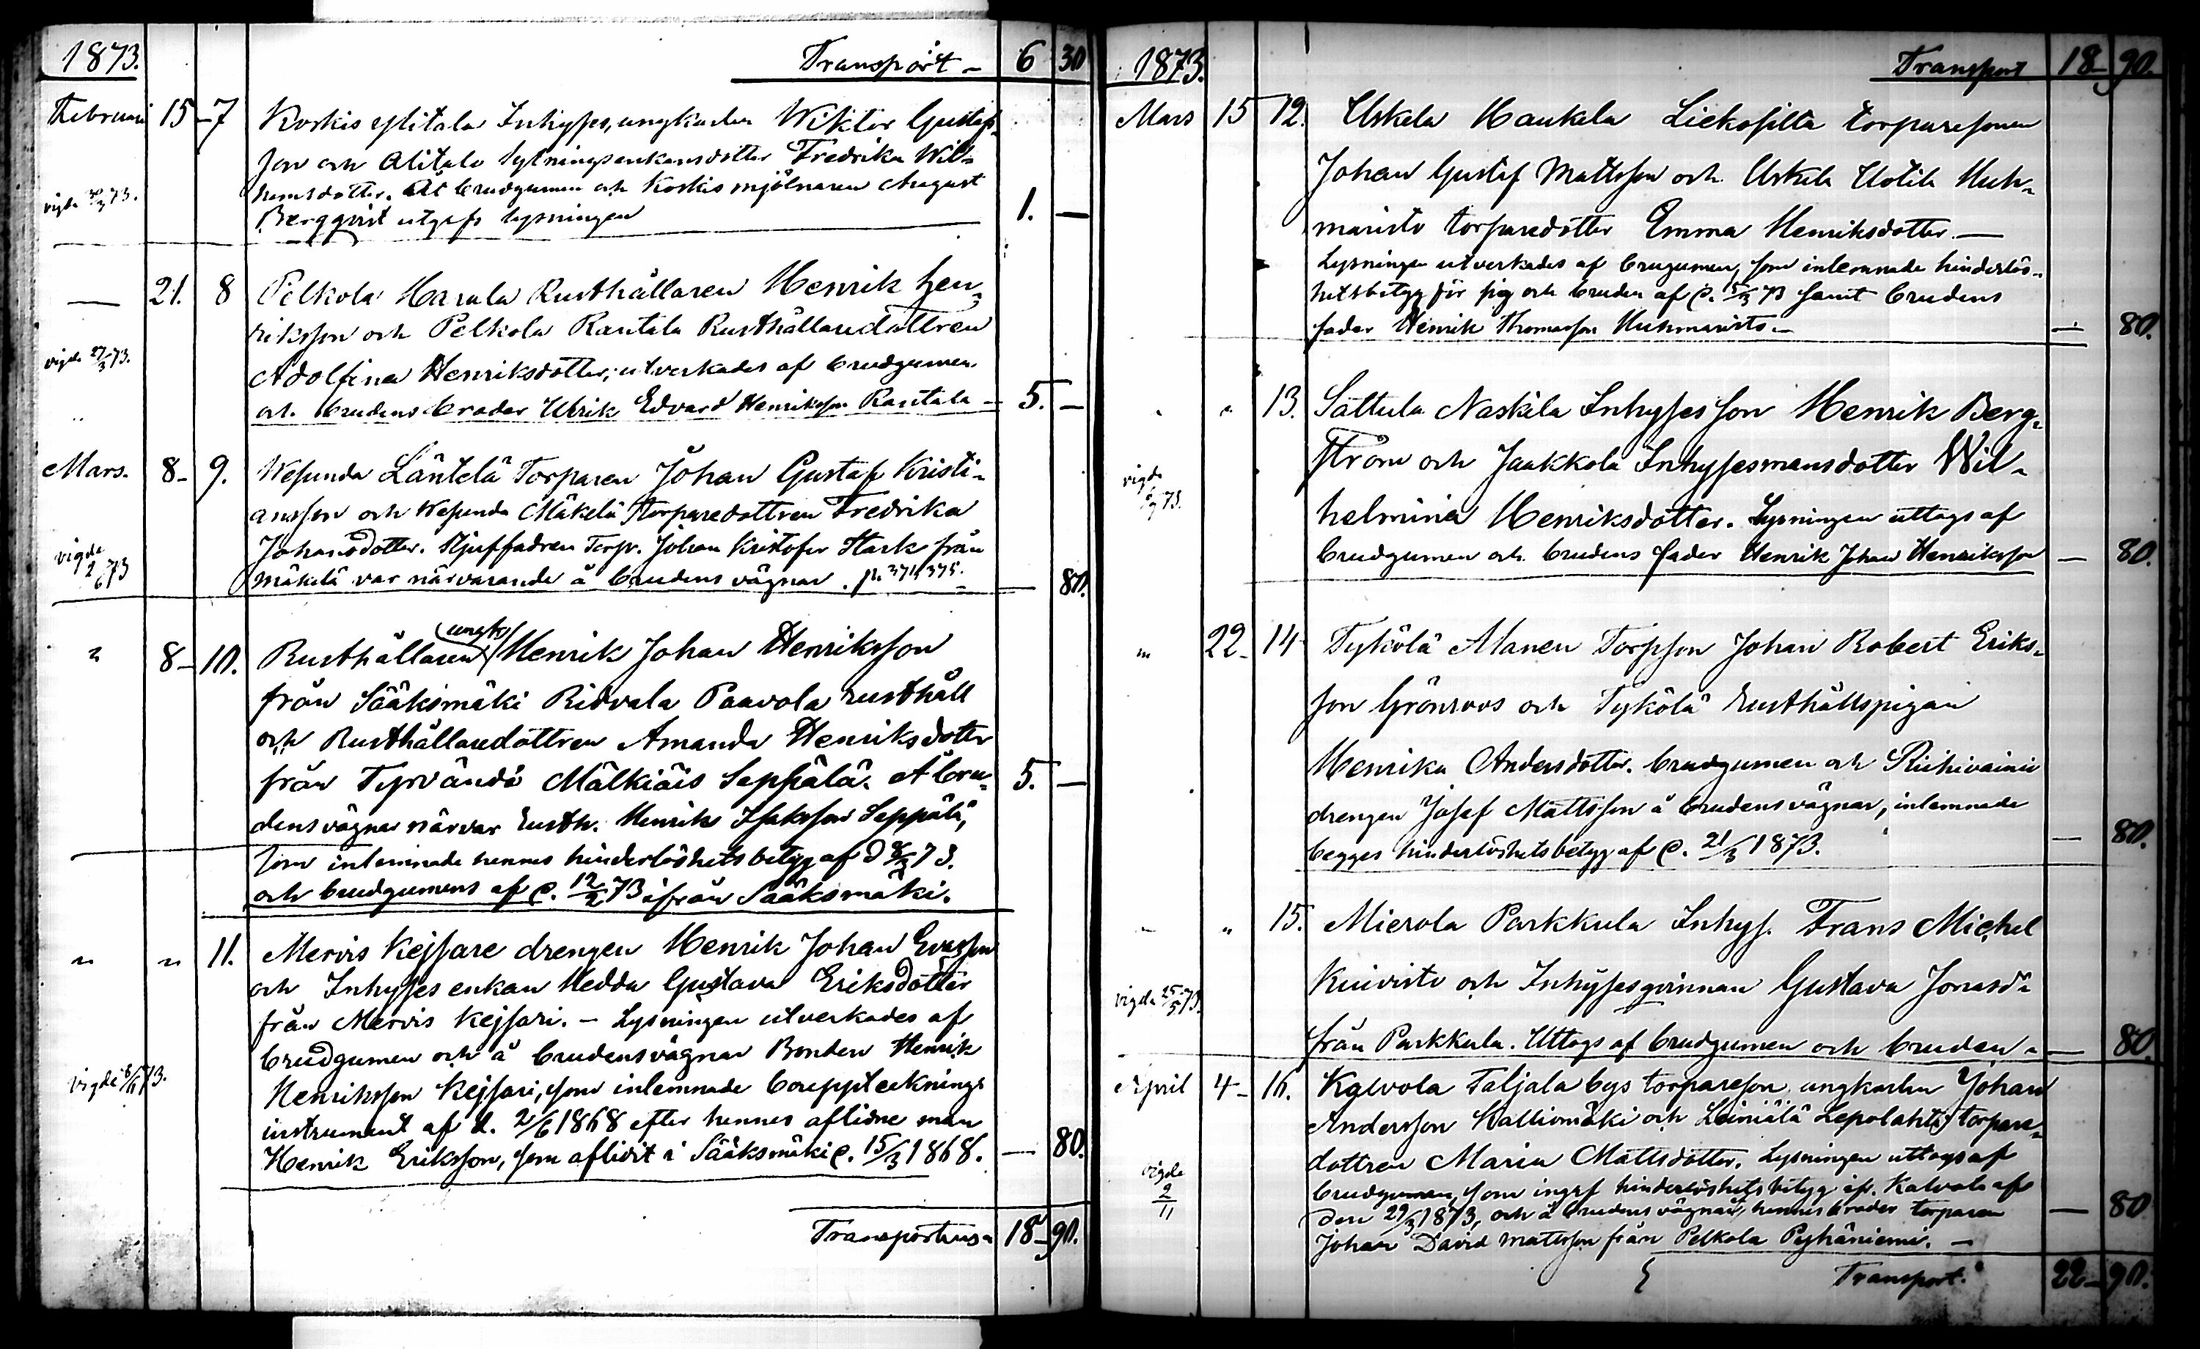 1873. Transport - 6 30
Februari 15 - 7 Koskis Ylitalo Inhyses, ungkarlen Wiktor Gustafs-
son och Alitalo Sytningsenkansdotter Fredrika Wil-
vigde 73. hemsdotter. Åt brudgumen och Koskis mjölnaren August
Bergqvist utgafs lysningen 1. —
— 21. 8 Pelkola Marula Rusthållaren Henrik Hen-
riksson och Pelkola Rantala Rusthållaredottren
vigde 27/3 73. Adolfina Henriksdotter, utverkades af brudgumen
och brudens broder Ulrik Edvard Henriksson Rantala - 5. —
Mars. 8 - 9. Wesunda Läntelä Torparen Johan Gustaf Kristi-
ansson och Wesunda Mäkelä Torparedottren Fredrika
vigde 2/6 73 Johansdotter. Stjuffadren Torp. Johan Kristofer Stark från
Mäkelä var närvarande å brudens vägnar. p. 371, 375. — 80.
" 8 - 10. Rusthållaren (ungk) Henrik Johan Henriksson
från Sääksmäki Ridvala Paavola rusthåll
och Rusthållaredottren Amanda Henriksdotter
från Tyrvändö Mälkiäis Seppälä. Å bru- 5. —
dens vägnar närvar Rusth. Henrik Isaksson Seppälä,
som inlemnade hennes hinderlöshetsbetyg af d 8/3 73.
och brudgumens af d. 12/2 73 ifrån Sääksmäki.
" " 11. Mervis Kejsare drengen Henrik Johan Evasson
och Inhysesenkan Hedda Gustava Eriksdotter
från Mervis Kejsari. - Lysningen utverkades af
brudgumen och å brudens vägnar Bonden Henrik
vigde 8/11 73. Henriksson Kejsari, som inlemnade bouppteknings
instrument af d. 2/6 1868 efter hennes aflidne man
Henrik Eriksson, som aflidit i Sääksmäki d. 15/3 1868. — 80.
Transporteras 18 - 90.
1873. Transport 18 - 90.
Mars 15 12. Uskela Haukela Liekosilta torparesonen
Johan Gustaf Mattsson och Uskela Uotila Huh-
maristo torparedotter Emma Henriksdotter. —
Lysningen utverkades af brugumen, som inlemnade hinderlös-
hetsbetyg för sig och bruden af d. 5/3 73 samt brudens
fader Henrik Thomasson Huhmaristo. — — 80.
" " 13. Sattula Naskila Inhyses son Henrik Berg-
ström och Jaakkola Inhysesmansdotter Wil-
vigde 73. helmina Henriksdotter. Lysningen uttogs af
brudgumen och brudens fader Henrik Johan Henriksson — 80.
" 22 - 14 Tykölä Alanen Torpson Johan Robert Eriks-
son Grönroos och Tykölä Rusthållspigan
Henrika Andersdotter. brudgumen och Riihivainio
drengen Josef Mattsson å brudens vägnar, inlemnade
begges hinderlöshetsbetyg af d. 21/3 1873. — 80.
" " 15. Mierola Parkkula Inhys. Frans Michel
Kuivisto och Inhysesqvinnan Gustava Jonasd-
vigde 25/5 73. från Parkkula. Uttogs af brudgumen och bruden - — 80.
April 4 - 16. Kalvola Taljala bys torpareson, ungkarlen Johan
Andersson Kalliomäki och Leiniälä Lepolahti torpare-
dottren Maria Mattsdotter. Lysningen uttogs af
vigde 2/11 brudgumen, som ingaf hinderlöshets betyg ifr. Kalvola af
den 29/3 1873, och å brudens vägnar, hennes broder torparen — 80
Johan David Mattsson från Pelkola Pyhäniemi. —
Transport. 22 - 90.